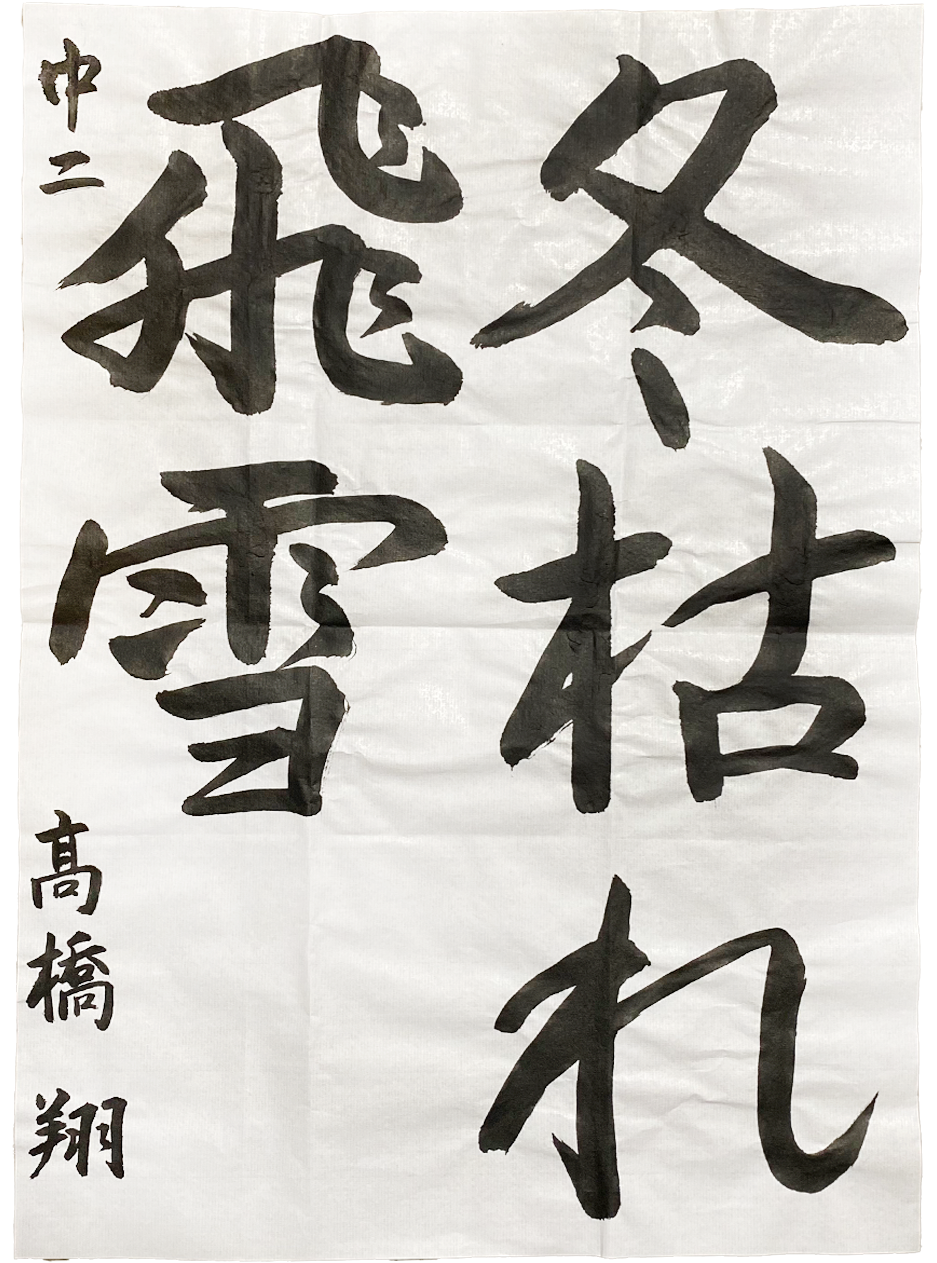 冬枯れ
飛雪
中二 髙橋 翔